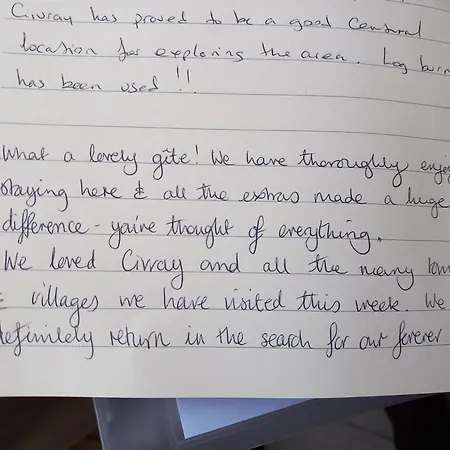 Civray has proved to be a good central
location for exploring the area. Log burn
has been used !!
What a lovely gîte! We have thoroughly enjoy
staying here & all the extras made a huge
difference - you've thought of everything.
We loved Civray and all the many town
& villages we have visited this week. We
definitely return in the search for our forever